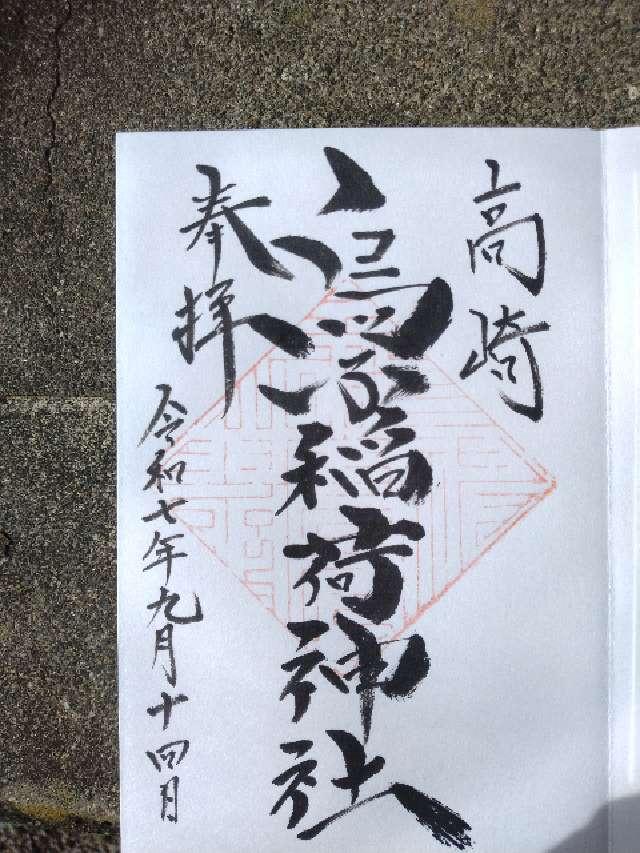 高崎
烏子稲荷神社
奉拝
令和七年九月十四日